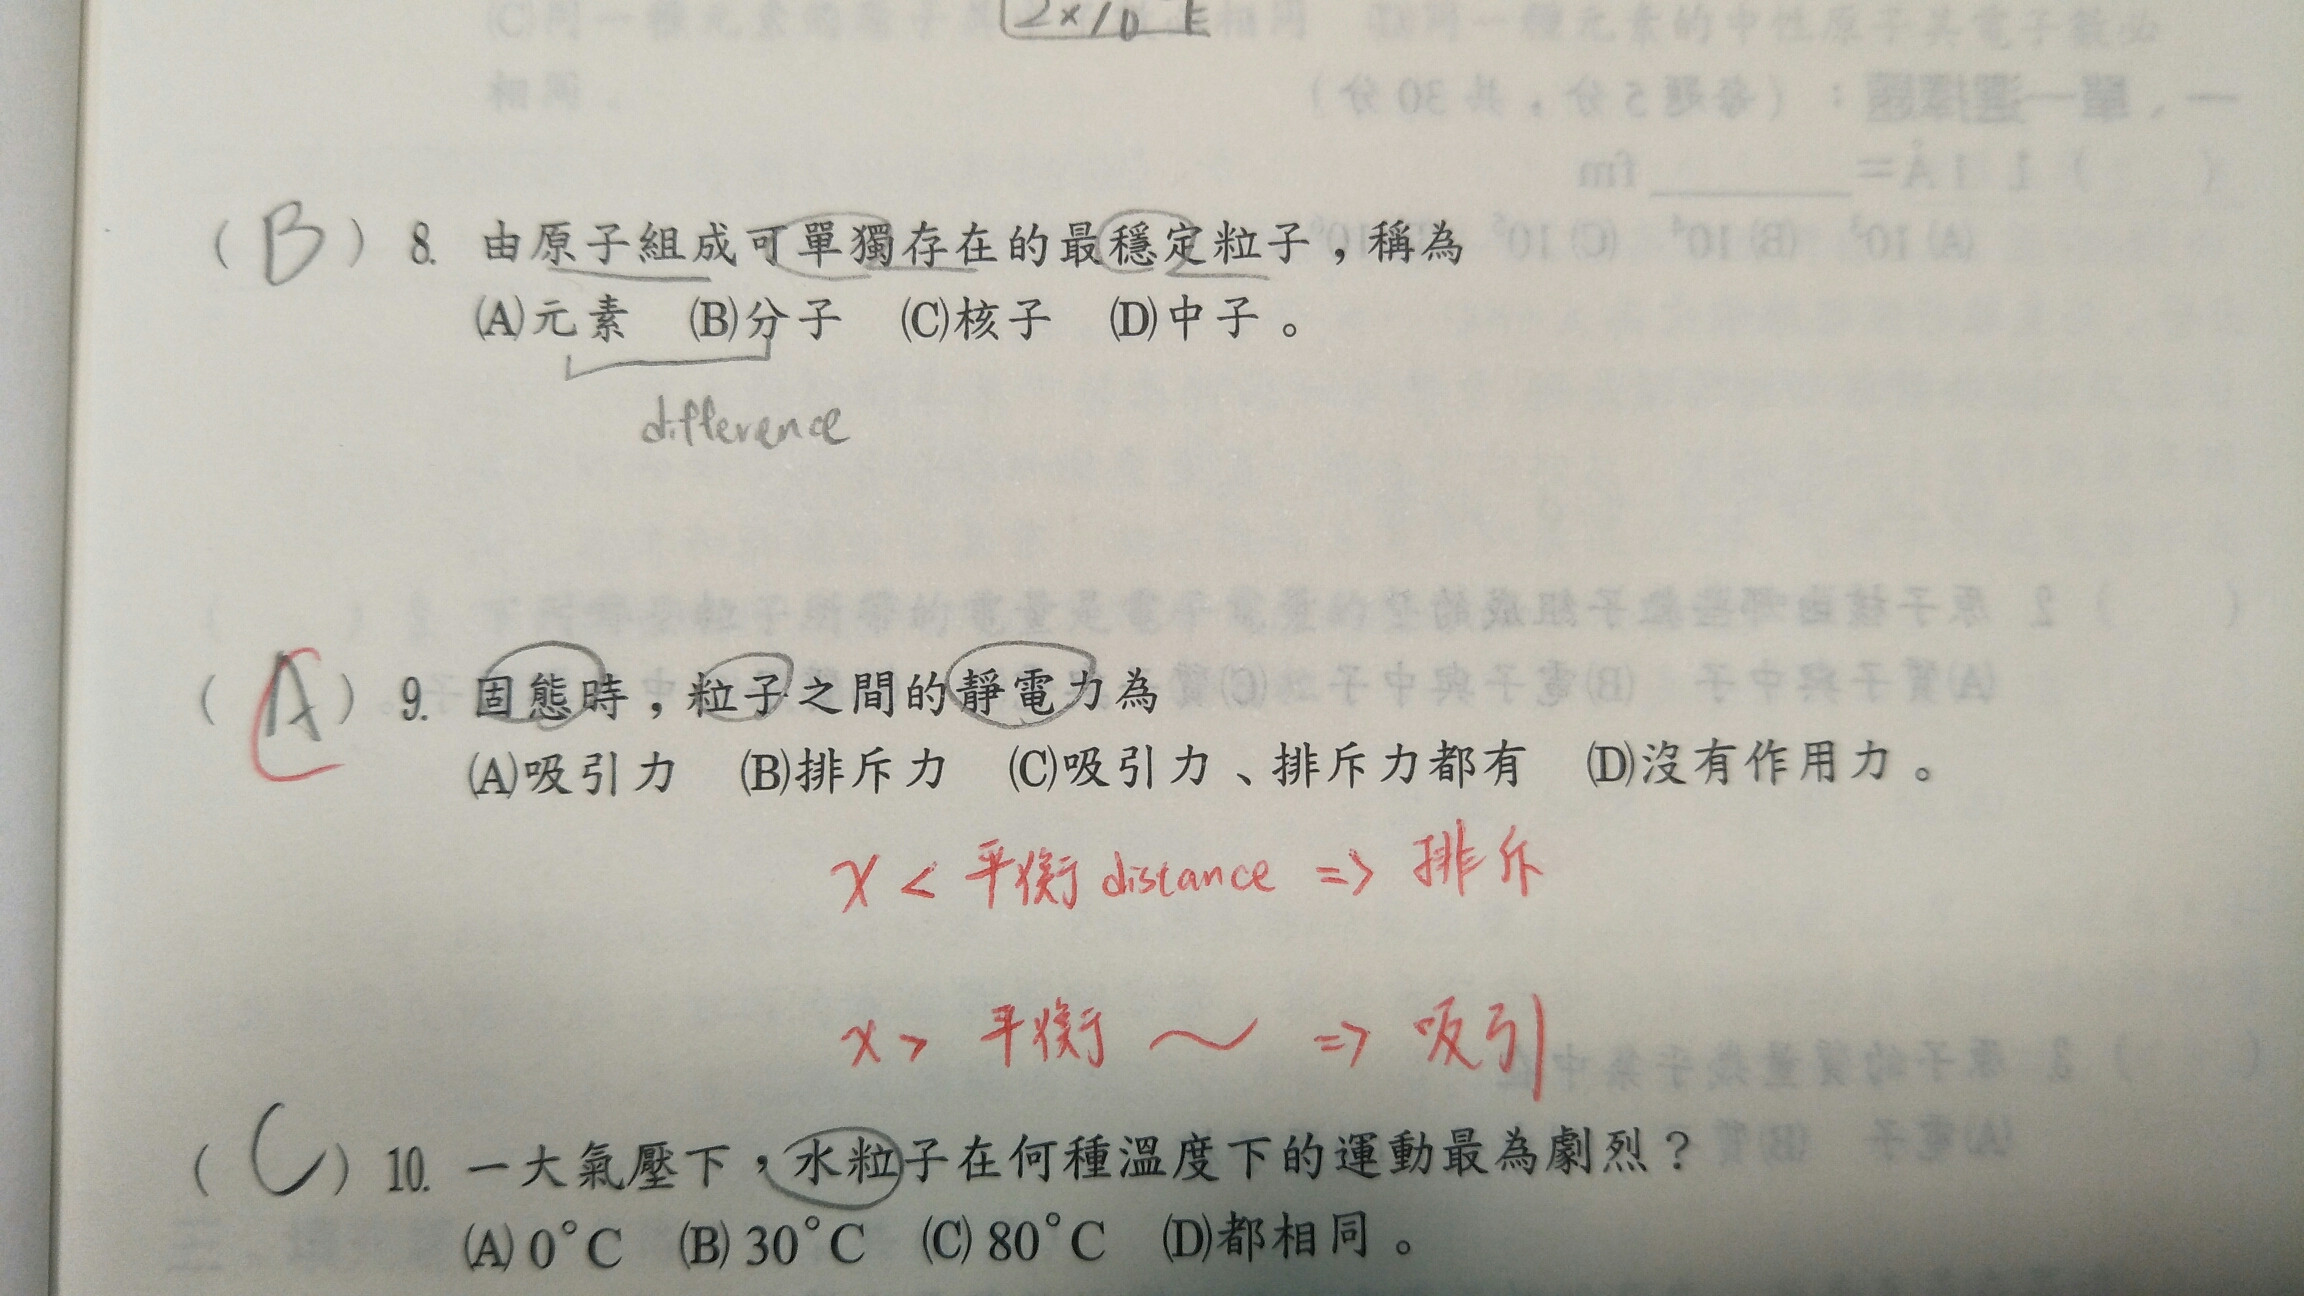 2×10
(B) 8. 由原子組成可單獨存在的最穩定粒子，稱為
(A)元素 (B)分子 (C)核子 (D)中子。
difference
(A) 9. 固態時，粒子之間的靜電力為
(A)吸引力 (B)排斥力 (C)吸引力、排斥力都有 (D)沒有作用力。
x < 平衡 distance => 排斥
x > 平衡 ~ => 吸引
(C) 10. 一大氣壓下，水粒子在何種溫度下的運動最為劇烈？
(A) 0°C (B) 30°C (C) 80°C (D)都相同。